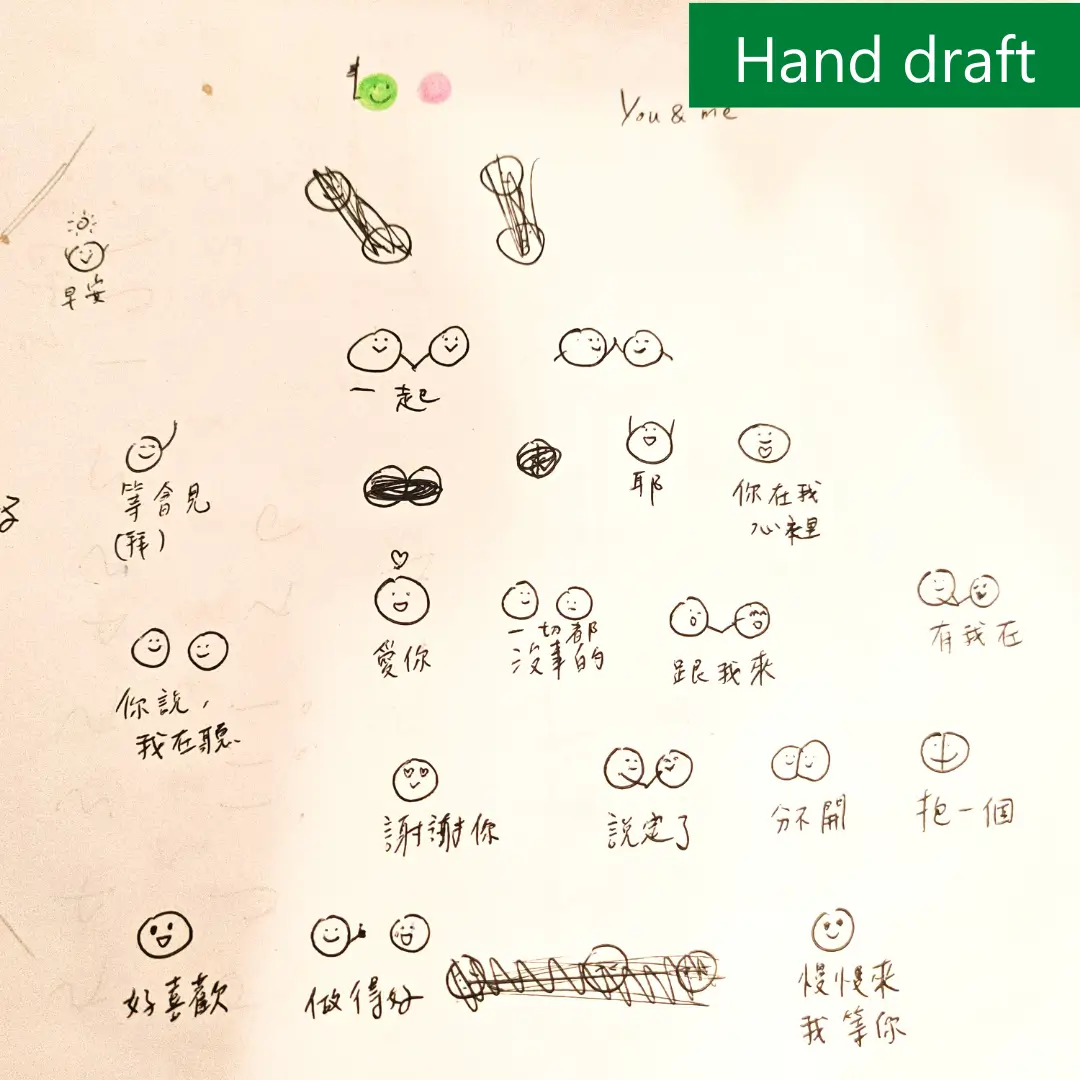 Hand draft
You & me
早安
一起
耶
你在我
心裡
等會見
(拜)
愛你
一切都
沒事的
跟我來
有我在
你說,
我在聽
謝謝你
說定了
分不開
抱一個
好喜歡
做得好
慢慢來
我等你